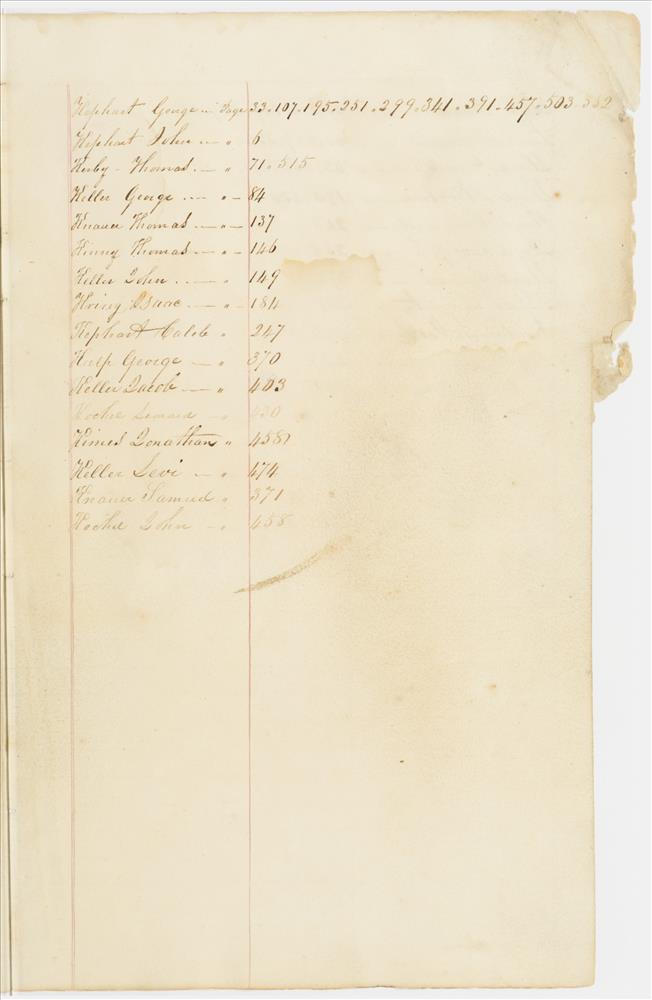 Kephart George .. Page 33.107.195.251.299.341.391.457.503.552
Kephart John .. — " 6
Kerby - Thomas . — " 71.515
Keller George .... " — 84
Knauer Thomas — " — 137
Kinny Thomas — " — 146
Keller John . — " 149
Isaac — " — 184
Kephart Caleb " 247
Kulp George — " 370
Keller Jacob — " 403
Kochel — " 430
Kimes Jonathan " 458
Keller Levi — " 474
Knauer Samuel " 371
Kochel John — " 458